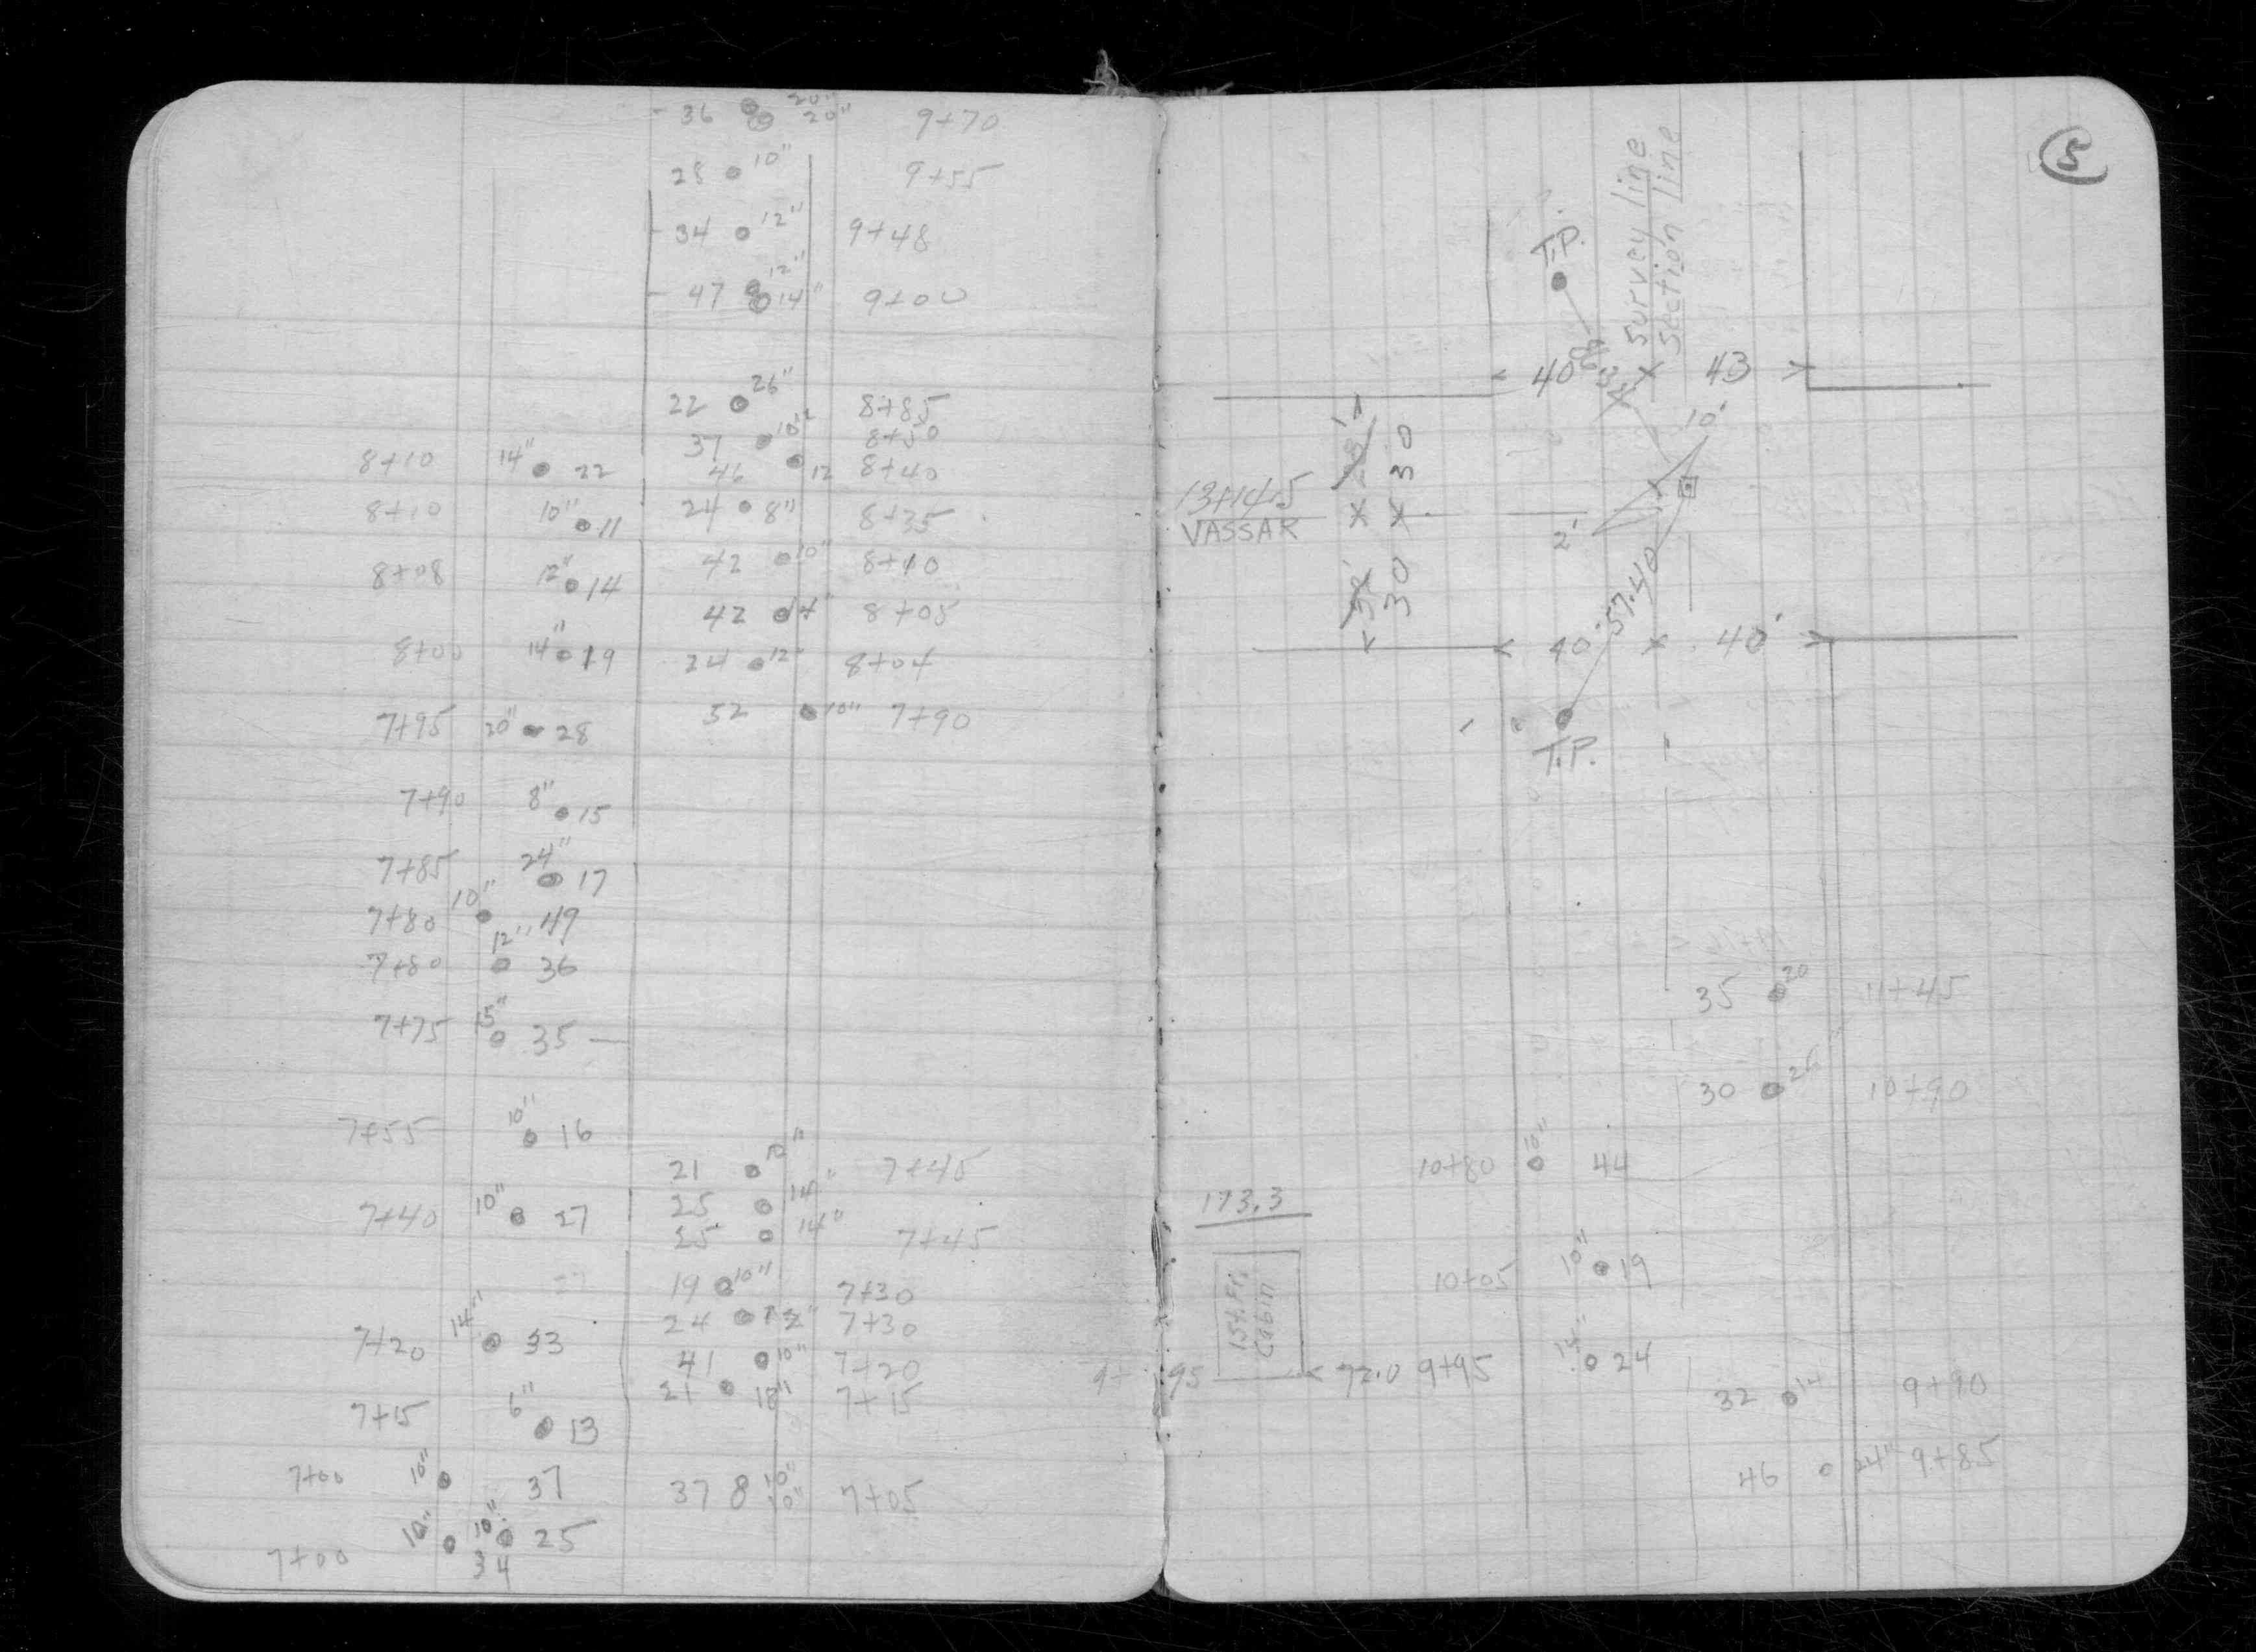 - 36 20" 20" 9+70
28 10" 9+55
- 34 12" 9+48
- 47 12" 14" 9+00
22 26" 8+85
37 10" 8+50
8+10 14" 22 46 12 8+40
8+10 10" 11 24 8" 8+35
8+08 12" 14 42 10" 8+10
42 14" 8+05
8+00 14" 19 24 12" 8+04
7+95 20" 28 52 10" 7+90
7+90 8" 15
7+85 24" 17
7+80 10" 49
7+80 12" 36
7+75 15" 35 —
7+55 10" 16
21 10" 7+45
7+40 10" 27 25 14"
25 14" 7+45
19 10" 7+30
24 12" 7+30
7+20 14" 33 41 10" 7+20
21 18" 7+15
7+15 6" 13
7+00 10" 37 37 10" 10" 7+05
10" 10" 25
7+00 34
5
Survey line
Section line
T.P.
40 x 43
10'
30 x 30
13+14.5
VASSAR
2'
57.40
40' x 40'
T.P.
35 20 11+45
30 10+90
10+80 10" 44
173.3
10+05 10" 19
1 St. Fr.
Cabin
9+95 72.0 9+95 24
32 14 9+90
46 24" 9+85